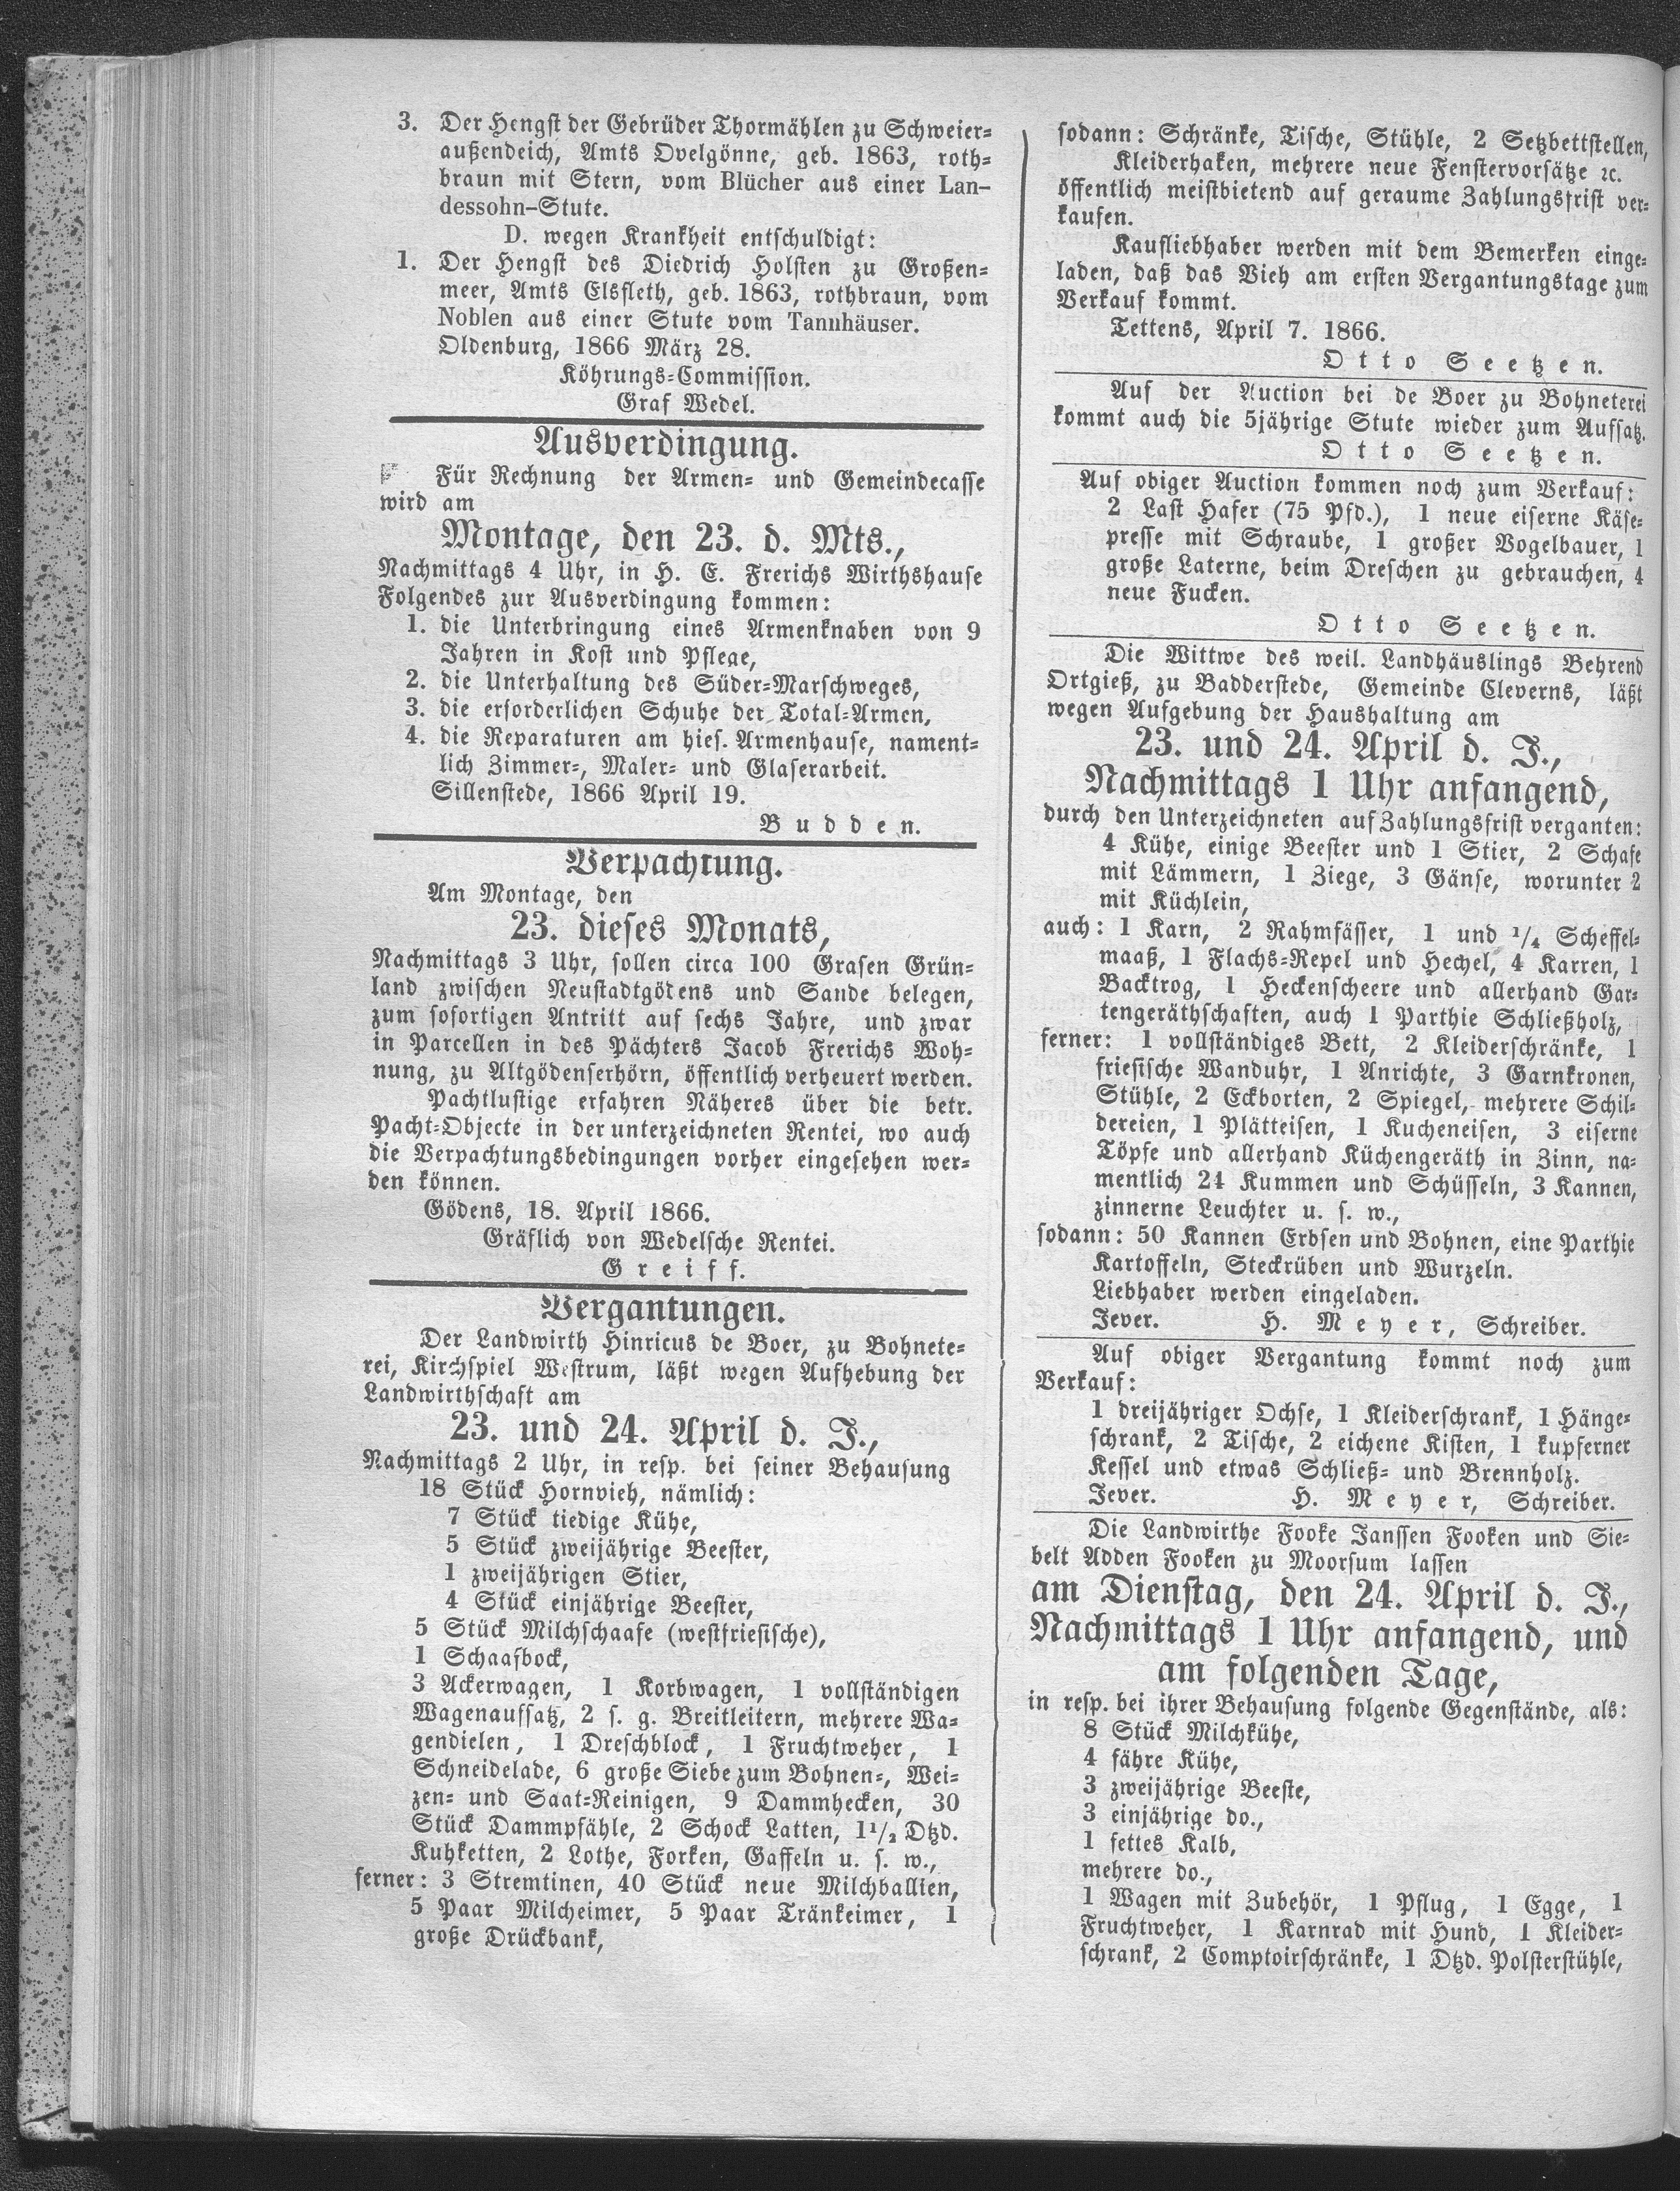 3. Der Hengst der Gebrüder Thormählen zu Schweier=
außendeich, Amts Ovelgönne, geb. 1863, roth=
braun mit Stern, vom Blücher aus einer Lan-
dessohn-Stute.
D. wegen Krankheit entschuldigt:
1. Der Hengst des Diedrich Holsten zu Großen=
meer, Amts Elsfleth, geb. 1863, rothbraun, vom
Noblen aus einer Stute vom Tannhäuser.
Oldenburg, 1866 März 28.
Köhrungs=Commission.
Graf Wedel.
Ausverdingung.
Für Rechnung der Armen= und Gemeindecasse
wird am
Montage, den 23. d. Mts.,
Nachmittags 4 Uhr, in H. E. Frerichs Wirthshause
Folgendes zur Ausverdingung kommen:
1. die Unterbringung eines Armenknaben von 9
Jahren in Kost und Pflege,
2. die Unterhaltung des Süder=Marschweges,
3. die erforderlichen Schuhe der Total=Armen,
4. die Reparaturen am hies. Armenhause, nament=
lich Zimmer=, Maler= und Glaserarbeit.
Sillenstede, 1866 April 19.
Budden.
Verpachtung.
Am Montage, den
23. dieses Monats,
Nachmittags 3 Uhr, sollen circa 100 Grasen Grün=
land zwischen Neustadtgödens und Sande belegen,
zum sofortigen Antritt auf sechs Jahre, und zwar
in Parcellen in des Pächters Jacob Frerichs Woh=
nung, zu Altgödenserhörn, öffentlich verheuert werden.
Pachtlustige erfahren Näheres über die betr.
Pacht=Objecte in der unterzeichneten Rentei, wo auch
die Verpachtungsbedingungen vorher eingesehen wer=
den können.
Gödens, 18. April 1866.
Gräflich von Wedelsche Rentei.
Greiff.
Vergantungen.
Der Landwirth Hinricus de Boer, zu Bohnete=
rei, Kirchspiel Westrum, läßt wegen Aufhebung der
Landwirthschaft am
23. und 24. April d. J.,
Nachmittags 2 Uhr, in resp. bei seiner Behausung
18 Stück Hornvieh, nämlich:
7 Stück tiedige Kühe,
5 Stück zweijährige Beester,
1 zweijährigen Stier,
4 Stück einjährige Beester,
5 Stück Milchschaafe (westfriesische),
1 Schaafbock,
3 Ackerwagen, 1 Korbwagen, 1 vollständigen
Wagenaufsatz, 2 s. g. Breitleitern, mehrere Wa=
gendielen, 1 Dreschblock, 1 Fruchtweher, 1
Schneidelade, 6 große Siebe zum Bohnen=, Wei=
zen= und Saat=Reinigen, 9 Dammhecken, 30
Stück Dammpfähle, 2 Schock Latten, 1½ Dtzd.
Kuhketten, 2 Lothe, Forken, Gaffeln u. s. w.,
ferner: 3 Stremtinen, 40 Stück neue Milchballien,
5 Paar Milcheimer, 5 Paar Tränkeimer, 1
große Drückbank,
sodann: Schränke, Tische, Stühle, 2 Setzbettstellen,
Kleiderhaken, mehrere neue Fenstervorsätze ꝛc.
öffentlich meistbietend auf geraume Zahlungsfrist ver=
kaufen.
Kaufliebhaber werden mit dem Bemerken einge=
laden, daß das Vieh am ersten Vergantungstage zum
Verkauf kommt.
Tettens, April 7. 1866.
Otto Seetzen.
Auf der Auction bei de Boer zu Bohneterei
kommt auch die 5jährige Stute wieder zum Aufsatz.
Otto Seetzen.
Auf obiger Auction kommen noch zum Verkauf:
2 Last Hafer (75 Pfd.), 1 neue eiserne Käse=
presse mit Schraube, 1 großer Vogelbauer, 1
große Laterne, beim Dreschen zu gebrauchen, 4
neue Fucken.
Otto Seetzen.
Die Wittwe des weil. Landhäuslings Behrend
Ortgieß, zu Badderstede, Gemeinde Cleverns, läßt
wegen Aufgebung der Haushaltung am
23. und 24. April d. J.,
Nachmittags 1 Uhr anfangend,
durch den Unterzeichneten auf Zahlungsfrist verganten:
4 Kühe, einige Beester und 1 Stier, 2 Schafe
mit Lämmern, 1 Ziege, 3 Gänse, worunter 2
mit Küchlein,
auch: 1 Karn, 2 Rahmfässer, 1 und ¼ Scheffel=
maaß, 1 Flachs=Repel und Hechel, 4 Karren, 1
Backtrog, 1 Heckenscheere und allerhand Gar=
tengeräthschaften, auch 1 Parthie Schließholz,
ferner: 1 vollständiges Bett, 2 Kleiderschränke, 1
friesische Wanduhr, 1 Anrichte, 3 Garnkronen,
Stühle, 2 Eckborten, 2 Spiegel, mehrere Schil=
dereien, 1 Plätteisen, 1 Kucheneisen, 3 eiserne
Töpfe und allerhand Küchengeräth in Zinn, na=
mentlich 24 Kummen und Schüsseln, 3 Kannen,
zinnerne Leuchter u. s. w.,
sodann: 50 Kannen Erbsen und Bohnen, eine Parthie
Kartoffeln, Steckrüben und Wurzeln.
Liebhaber werden eingeladen.
Jever. H. Meyer, Schreiber.
Auf obiger Vergantung kommt noch zum
Verkauf:
1 dreijähriger Ochse, 1 Kleiderschrank, 1 Hänge=
schrank, 2 Tische, 2 eichene Kisten, 1 kupferner
Kessel und etwas Schließ= und Brennholz.
Jever. H. Meyer, Schreiber.
Die Landwirthe Fooke Janssen Fooken und Sie=
belt Adden Fooken zu Moorsum lassen
am Dienstag, den 24. April d. J.,
Nachmittags 1 Uhr anfangend, und
am folgenden Tage,
in resp. bei ihrer Behausung folgende Gegenstände, als:
8 Stück Milchkühe,
4 fähre Kühe,
3 zweijährige Beeste,
3 einjährige do.,
1 fettes Kalb,
mehrere do.,
1 Wagen mit Zubehör, 1 Pflug, 1 Egge, 1
Fruchtweher, 1 Karnrad mit Hund, 1 Kleider=
schrank, 2 Comptoirschränke, 1 Dtzd. Polsterstühle,